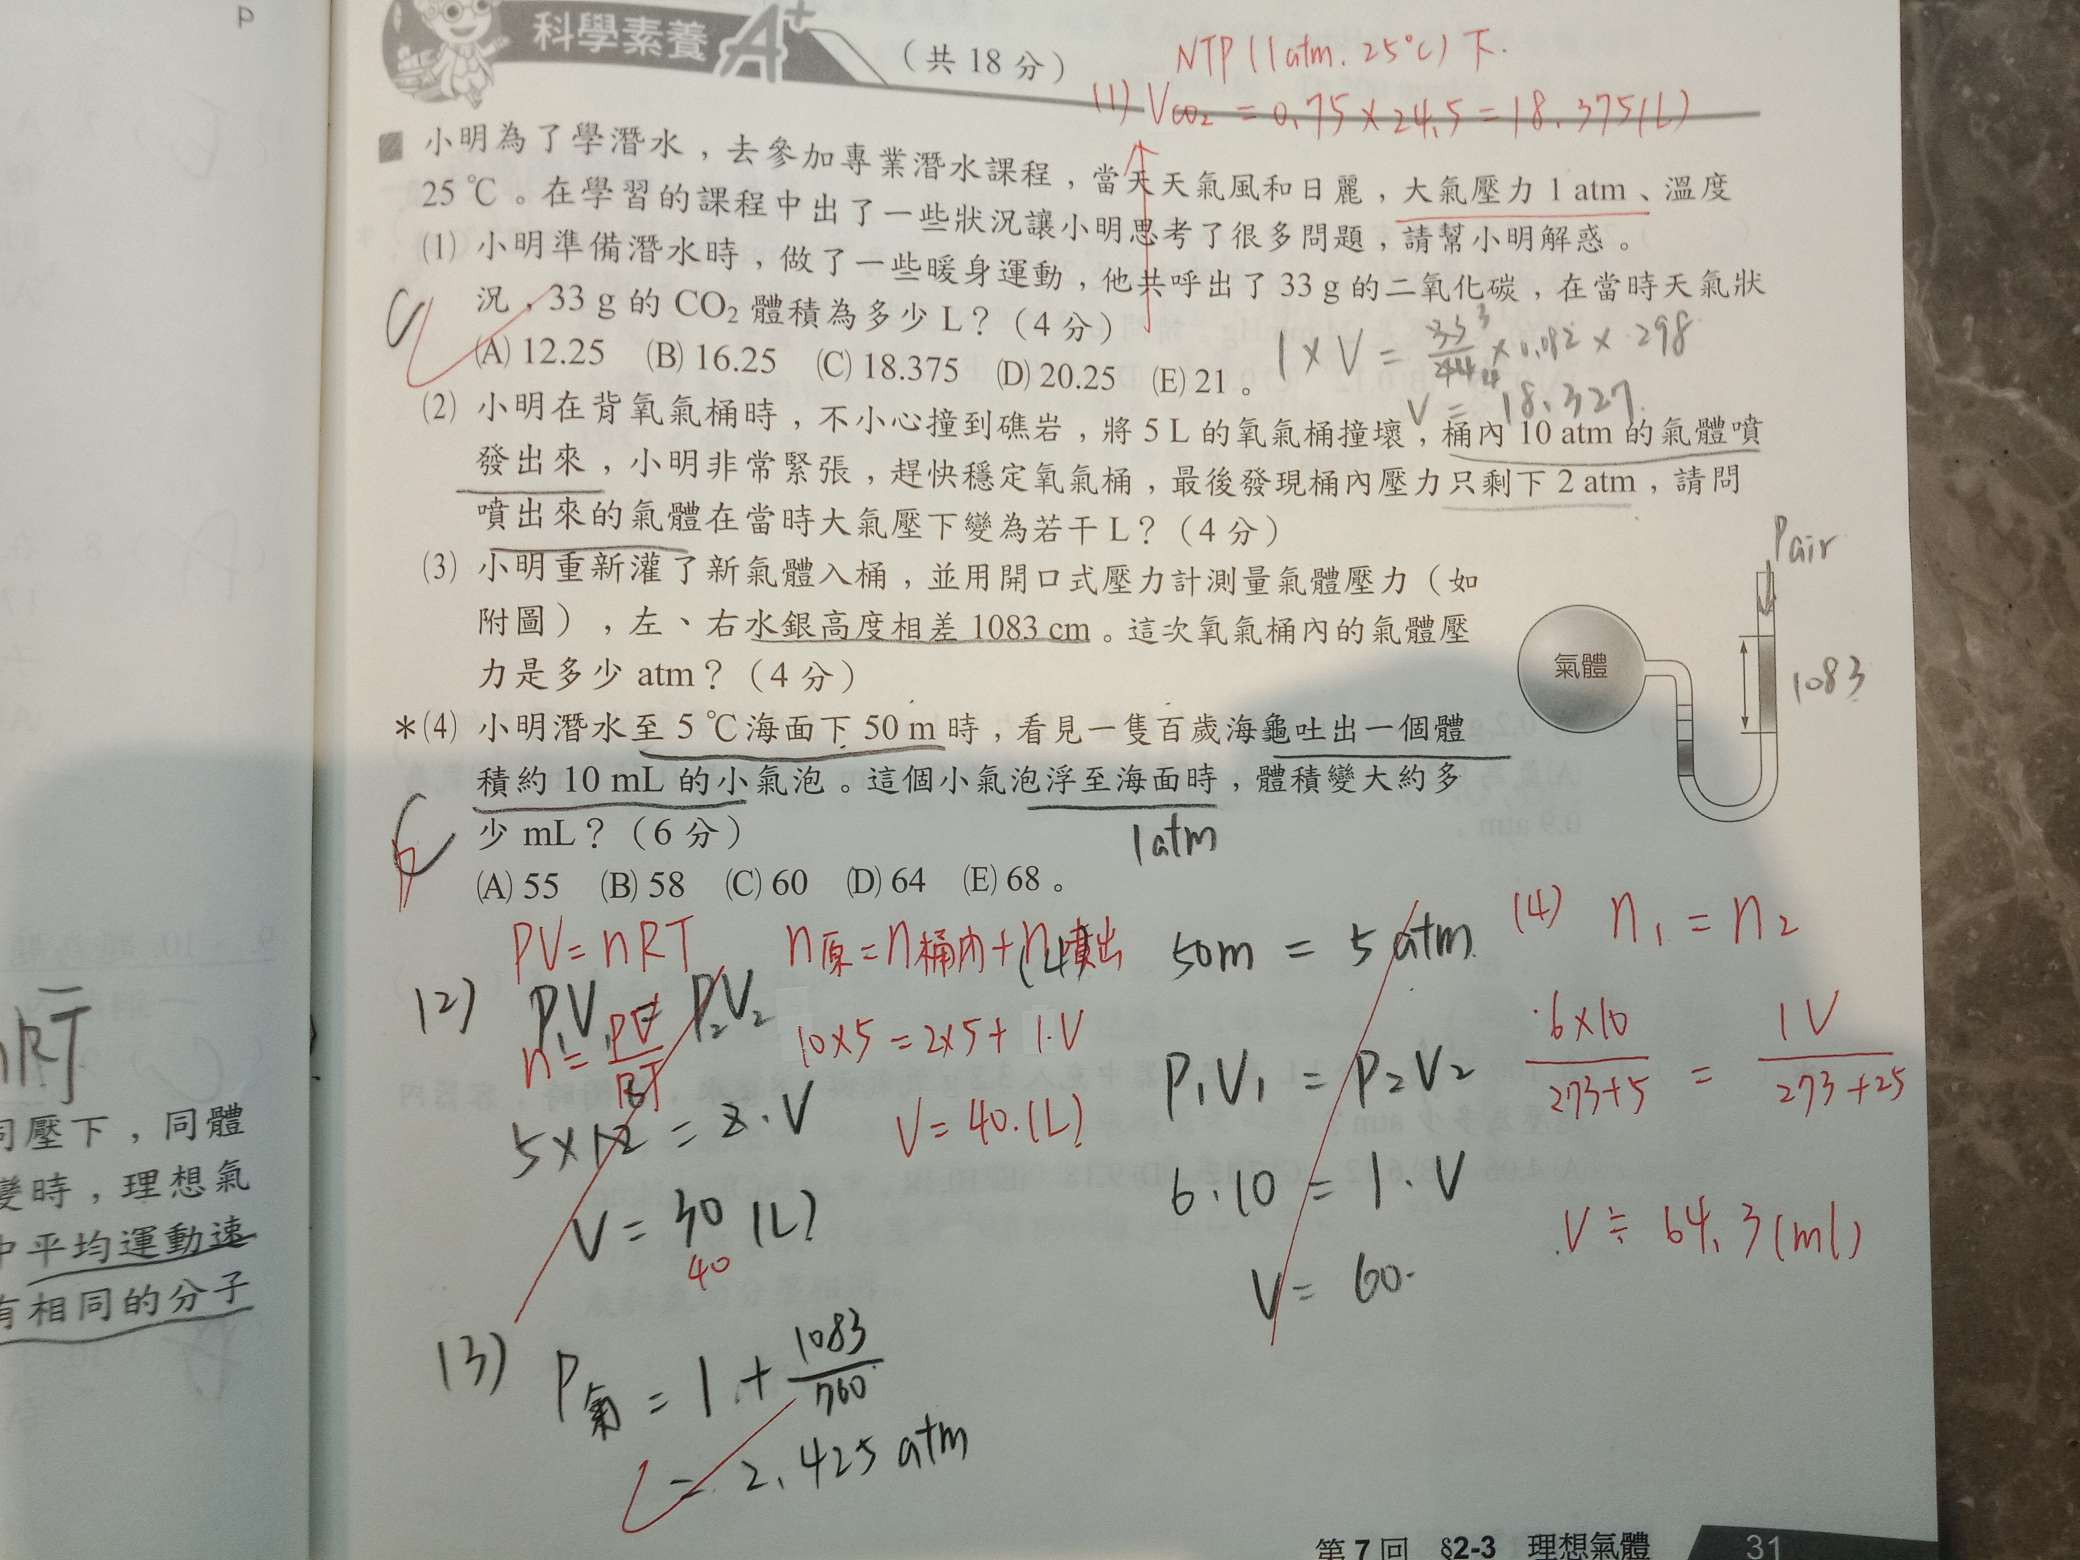 P
科學素養 A+ （共 18 分）
NTP (1atm. 25℃) 下.
(1) VCO2 = 0.75 × 24.5 = 18.375(L)
■ 小明為了學潛水，去參加專業潛水課程，當天天氣風和日麗，大氣壓力 1 atm、溫度
25 ℃。在學習的課程中出了一些狀況讓小明思考了很多問題，請幫小明解惑。
⑴ 小明準備潛水時，做了一些暖身運動，他共呼出了 33 g 的二氧化碳，在當時天氣狀
況，33 g 的 CO₂ 體積為多少 L？（4 分）
C
(A) 12.25 (B) 16.25 (C) 18.375 (D) 20.25 (E) 21。
1 × V = 33/44 × 0.082 × 298
3
4
V = 18.327.
⑵ 小明在背氧氣桶時，不小心撞到礁岩，將 5 L 的氧氣桶撞壞，桶內 10 atm 的氣體噴
發出來，小明非常緊張，趕快穩定氧氣桶，最後發現桶內壓力只剩下 2 atm，請問
噴出來的氣體在當時大氣壓下變為若干 L？（4 分）
⑶ 小明重新灌了新氣體入桶，並用開口式壓力計測量氣體壓力（如
附圖），左、右水銀高度相差 1083 cm。這次氧氣桶內的氣體壓
力是多少 atm？（4 分）
Pair
氣體
1083
＊⑷ 小明潛水至 5 ℃海面下 50 m 時，看見一隻百歲海龜吐出一個體
積約 10 mL 的小氣泡。這個小氣泡浮至海面時，體積變大約多
少 mL？（6 分）
C
1atm
(A) 55 (B) 58 (C) 60 (D) 64 (E) 68。
PV = nRT
n原 = n桶內 + n噴出
(2) P₁V₁ = P₂V₂
n = PV/RT
10×5 = 2×5 + 1.V
V = 40.(L)
V = 30 (L)
40
(4) 50m = 5 atm.
P₁V₁ = P₂V₂
6.10 = 1.V
V = 60.
(4) n₁ = n₂
6×10/273+5 = 1V/273+25
V ≒ 64.3(ml)
(3) P氣 = 1 + 1083/760
= 2.425 atm
nRT
同壓下，同體
變時，理想氣
中平均運動速
有相同的分子
第 7 回 §2-3 理想氣體 31